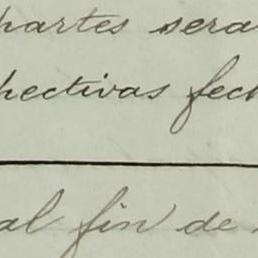 partes sera
pectivas fech
al fin de